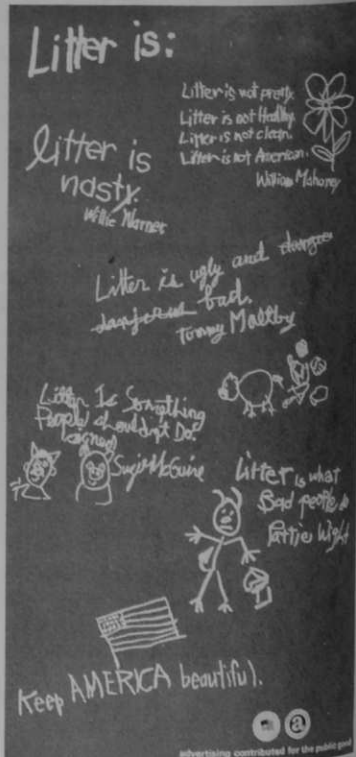 Litter is:
Litter is not pretty.
Litter is not Healthy.
Litter is not clean.
Litter is not American.
William Mahoney
Litter is
nasty.
Willie Warner
Litter is ugly and
bad.
Tommy Maltby
Litter Is Something
People shouldn't Do.
Suzie McGuire
Litter is what
Bad people do
Pattie Wight
Keep AMERICA beautiful.
advertising contributed for the public good